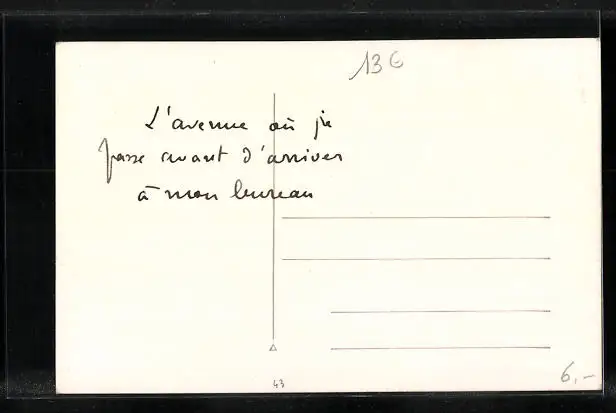 13€
L'avenue où je
passe avant d'arriver
à mon bureau
43
6,-